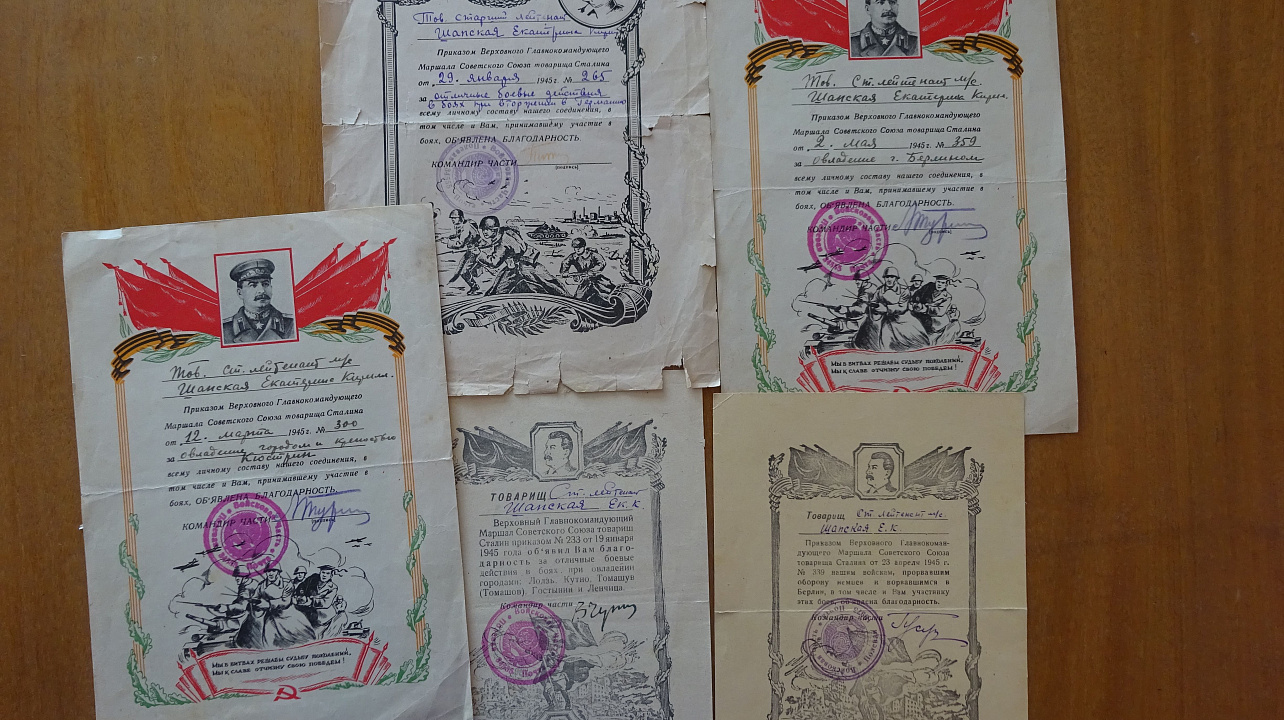 Тов. старший лейтенант
Шапская Екатерина Кирил
Приказом Верховного Главнокомандующего
Маршала Советского Союза товарища Сталина
от „29. января 1945 г. № 265
за отличные боевые действия
в боях при вторжении в Германию
всему личному составу нашего соединения, в
том числе и Вам, принимавшему участие в
боях, ОБ'ЯВЛЕНА БЛАГОДАРНОСТЬ.
КОМАНДИР ЧАСТИ
(подпись)
Тов. Ст. лейтенант м/с.
Шапская Екатерина Кирил.
Приказом Верховного Главнокомандующего
Маршала Советского Союза товарища Сталина
от „2. мая 1945 г. № 359
за овладение г. Берлином
всему личному составу нашего соединения, в
том числе и Вам, принимавшему участие в
боях, ОБ'ЯВЛЕНА БЛАГОДАРНОСТЬ.
КОМАНДИР ЧАСТИ
(подпись)
МЫ В БИТВАХ РЕШАЕМ СУДЬБУ ПОКОЛЕНИЙ,
МЫ К СЛАВЕ ОТЧИЗНУ СВОЮ ПОВЕДЕМ!
Тов. Ст. лейтенант м/с
Шапская Екатерина Кирил.
Приказом Верховного Главнокомандующего
Маршала Советского Союза товарища Сталина
от „12. марта 1945 г. № 300
за овладение городом и крепостью
Кюстрин
всему личному составу нашего соединения, в
том числе и Вам, принимавшему участие в
боях, ОБ'ЯВЛЕНА БЛАГОДАРНОСТЬ.
КОМАНДИР ЧАСТИ
(подпись)
МЫ В БИТВАХ РЕШАЕМ СУДЬБУ ПОКОЛЕНИЙ,
МЫ К СЛАВЕ ОТЧИЗНУ СВОЮ ПОВЕДЕМ!
ТОВАРИЩ Ст. лейтенант
Шапская Ек. К.
Верховный Главнокомандующий
Маршал Советского Союза товарищ
Сталин приказом № 233 от 19 января
1945 года об'явил Вам благо-
дарность за отличные боевые
действия в боях при овладении
городами: Лодзь, Кутно, Томашув
(Томашов), Гостынин и Ленчица.
Командир части
Товарищ Ст. лейтенант м/с.
Шапская Е. К.
Приказом Верховного Главнокоман-
дующего Маршала Советского Союза
товарища Сталина от 23 апреля 1945 г.
№ 339 нашим войскам, прорвавшим
оборону немцев и ворвавшимся в
Берлин, в том числе и Вам участнику
этих боев, об'явлена благодарность.
Командир части